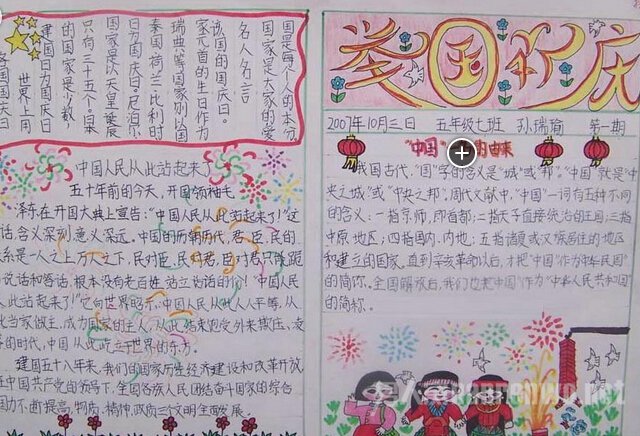 国是每个人的本分。
国家是大家的爱
名人名言
该国的国庆日。
家元首的生日作为
瑞典等国家则以国
泰国 荷兰 比利时
为国庆日。尼泊尔
国家是以天皇诞辰
只有三十五个。日本
的国家是少数,
建国日为国庆日
世界上用
各国国庆日
中国人民从此站起来了
五十年前的今天,开国领袖毛
泽东在开国大典上宣告:“中国人民从此站起来了!”这
话含义深刻,意义深远。中国的历朝历代,君、臣、民的
系是一人之上万人之下,民对臣、民对君、臣对君只能跪
说话和答话,根本没有老百姓站立说话的份!“中国人民
站起来了!”它向世界昭示:中国人民从此人人平等,从
此当家做主,成为国家的主人,从此结束饱受外来欺庄、凌
的时代,中国从此屹立于世界的东方。
建国五十八年来,我们的国家历经经济建设和改革开放
在中国共产党的领导下,全国各族人民团结奋斗国家的综合
国力不断提高,物质、精神、政质三个文明全面发展。
举国欢庆
2007年10月三日 五年级七班 孙瑞瑜 第一期
“中国”的由来
我国古代,“国”字的含义是“城”或“邦”。“中国”就是“中
央之城”或“中央之邦”。周代文献中,“中国”一词有五种不同
的含义:一指京师,即首都;二指天子直接统治的王国;三指
中原地区;四指国内、内地;五指诸夏或汉族居住的地区
和建立的国家。直到辛亥革命以后,才把“中国”作为“中华民国”
的简称。全国解放后,我们也把“中国”作为“中华人民共和国”
的简称。